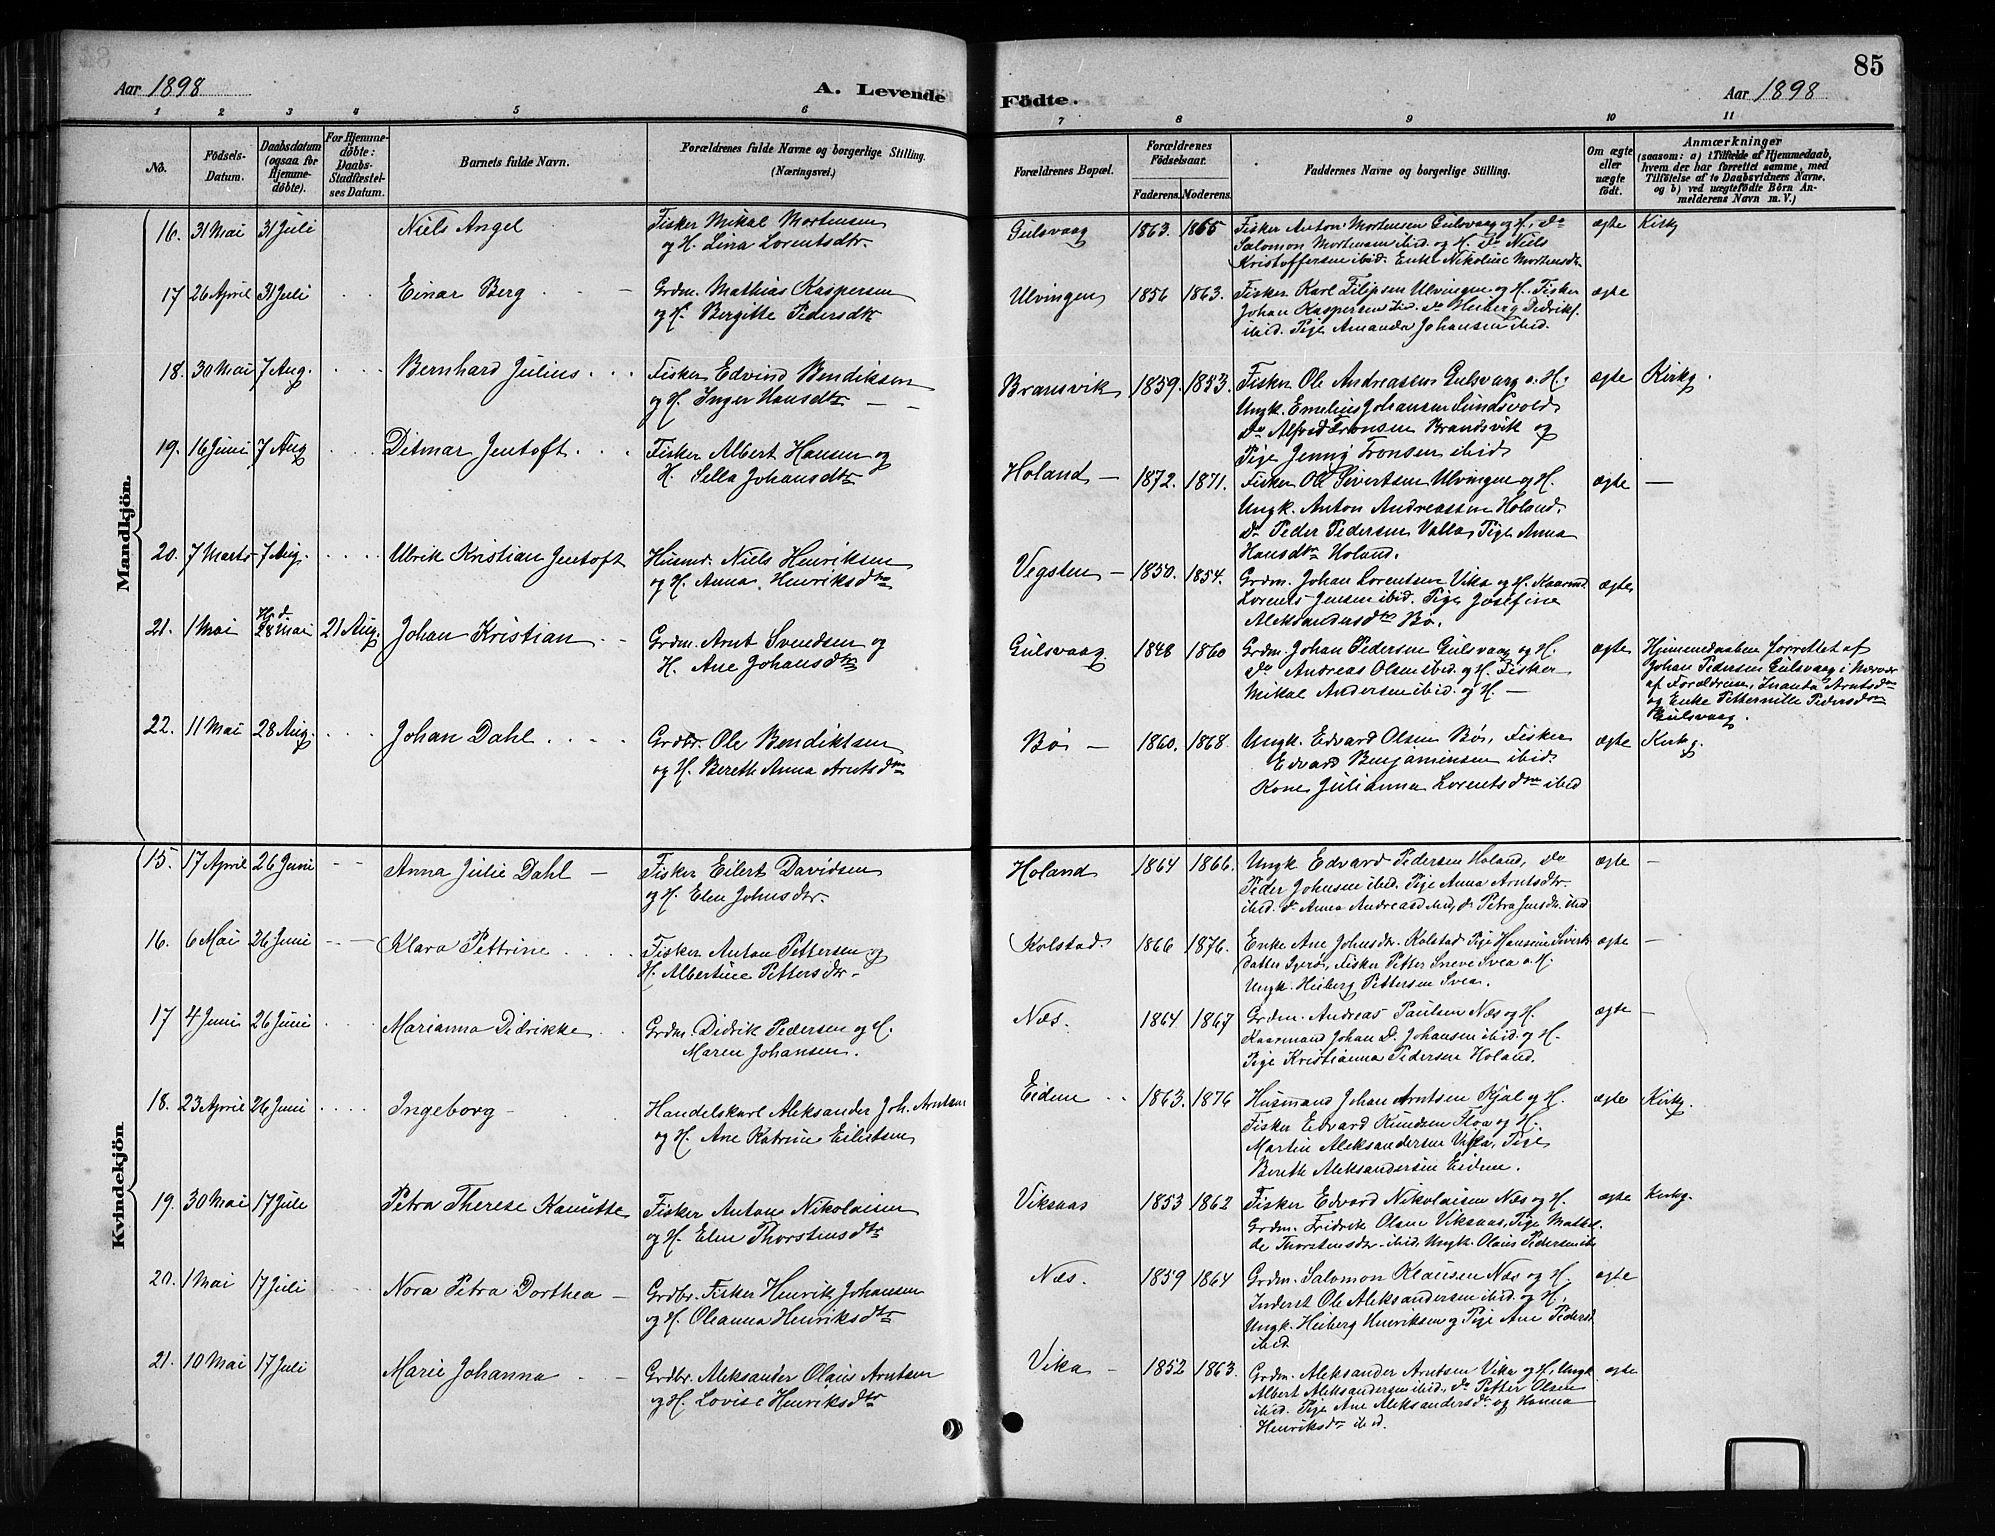 85
Aar 1898
A. Levende
Födte.
Aar 1898
1 2 3 4 5 6
7 8 9 10 11
No.
Födsels-
Datum.
Daabsdatum
(ogsaa for
Hjemme-
døbte).
For Hjemme-
døbte:
Daabs-
Stadfæstel-
ses Datum.
Barnets fulde Navn.
Forældrenes fulde Navne og borgerlige Stilling.
(Næringsvei.)
Forældrenes Bopæl.
Forældrenes
Födselsaar.
Faderens. Moderens.
Faddernes Navne og borgerlige Stilling.
Om ægte
eller
uægte
født.
Anmærkninger
(saasom: a) i Tilfælde af Hjemmedaab,
hvem der har forrettet samme, med
Tilføielse af to Daabsvidners Navne,
og b) ved uægtefødte Börn An-
melderens Navn m. V.)
Mandkjön.
16. 31 Mai 31 Juli Niels Angel
Fisker Mikal Mortensen
og H. Lina Lorentsdtr.
Gulsvaag 1863. 1865
Fisker Anton Mortensen Gulsvaag og H., Do
Salomon Mortensen ibid. og H. Do Niels
Kristoffersen ibid. Enke Nikoline Mortensdtr.
ægte Kirkg
17 26 April 31 Juli Einar Berg
Grdm. Mathias Kaspersen
og H. Bergitte Pedersdtr
Ulvingen 1856 1863.
Fisker Karl Filipsen Ulvingen og H. Fisker
Johan Kaspersen ibid. Do Heiberg Didrikf.
ibid. Pige Amanda Johansen ibid.
ægte
18. 30 Mai 7 Aug. Bernhard Julius
Fisker Edvind Bendiksen
og H. Inger Hansdtr
Bransvik 1859. 1853.
Fisker Ole Andreassen Gulsvaag o. H.
Ungk. Emelius Johansen Sundsvold
Do Alfred Tronsen Brandsvik og
Pige Jenny Tronsen ibid
ægte Kirkg.
19. 16 Juni 7 Aug Ditmar Jentoft
Fisker Albert Hansen og
H. Sella Johansdtr
Holand 1872. 1871.
Fisker Ole Sivertsen Ulvingen og H.
Ungk. Anton Andreassen Holand.
Do Peder Pedersen Valla, Pige Anna
Hansdtr Holand.
ægte —
20. 7 Marts 7 Aug. Ulrik Kristian Jentoft
Husmd. Niels Henriksen
og H. Anna Henriksdtr
Vegsten 1850. 1854.
Grdm. Johan Lorentsen Vika og H. Kaarmd.
Lorents Jensen ibid. Pige Josefine
Aleksandersdtr Bø.
ægte
21. 1 Mai Hjd. 28 Mai 21 Aug. Johan Kristian
Grdm. Arnt Svendsen og
H. Ane Johansdtr
Gulsvaag 1848 1860
Grdm. Johan Pedersen Gulsvaag og H.
Do Andreas Olsen ibid. og H. Fisker
Mikal Andersen ibid. og H. —
ægte
Hjemmedaaben forrettet af
Johan Pedersen Gulsvaag i Nærvær
af Forældrene, Inanta Arntsdtr
og Enke Petternille Pedersdtr
Gulsvaag.
22. 11 Mai 28 Aug. Johan Dahl
Grdbr. Ole Bendiktsen
og H. Bereth Anna Arntsdtr
Bø — 1860. 1868.
Ungk. Edvard Olsen Bø, Fisker
Edvard Benjaminsen ibid.
Kone Julianna Lorentsdtr ibid
ægte Kirkg.
Kvindekjön
15. 17 April 26 Juni Anna Julie Dahl —
Fisker Eilert Davidsen
og H. Elen Johnsdtr.
Holand 1864 1866.
Ungk Edvard Pedersen Holand, Do
Peder Johnsen ibid. Pige Anna Arntsdtr.
ibid. Do Anna Andreasd ibid, Do Petra Jensdtr ibid
ægte —
16. 6 Mai 26 Juni Klara Pettrine
Fisker Anton Pettersen og
H. Albertine Pettersdtr.
Kolstad. 1866 1876.
Enke Ane Johnsdtr. Kolstad Pige Hansine Siverts
datter Igerø, Fisker Petter Sneve Svea o. H.
Ungk. Heiberg Pettersen Svea.
ægte —
17 4 Juni 26 Juni Marianna Didrikke
Grdm. Didrik Pedersen og H.
Maren Johansen.
Næs. 1864 1867
Grdm. Andreas Paulsen Næs og H.
Kaarmand Johan D. Johansen ibid. og H.
Pige Kristianna Pedersen Holand.
ægte —
18. 23 April 26 Juni Ingeborg
Handelskarl Aleksander Joh. Arntsen
og H. Ane Katrine Eilertsen
Eidem 1863. 1876
Husmand Johan Arntsen Kjal og H.
Fisker Edvard Knudsen Floa og H.
Martin Aleksandersen Vika, Pige
Bereth Aleksandersen Eidem.
ægte Kirkg.
19. 30 Mai 17 Juli Petra Therese Kanutte
Fisker Anton Nikolaisen
og H. Elen Thorstensdtr
Viksaas 1853 1862
Fisker Edvard Nikolaisen Næs og H.
Grdm. Fridrik Olsen Viksaas, Pige Mathel-
de Thorstensdtr. ibid. Ungk. Olaus Pedersen ibi
ægte Kirkg.
20. 1 Mai 17 Juli Nora Petra Dorthea —
Grdbr. Fisker Henrik Johansen
og H. Oleanna Henriksdtr
Næs. 1859 1864
Grdm. Salomon Klausen Næs og H.
Inderst Ole Aleksandersen ibid. og H.
Ungk. Heiberg Henriksen og Pige Ane Pedersd
ibid
ægte
21. 10 Mai 17 Juli Marie Johanna
Grdbr. Aleksander Olaus Arntsen
og H. Lovise Henriksdtr
Vika 1852 1863.
Grdm. Aleksander Arntsen Vika og H, Ungk
Albert Aleksandersen ibid, Do Petter Olsen
ibid. Pige Ane Aleksandersdtr og Hanna
Henriksdtr ibid.
ægte